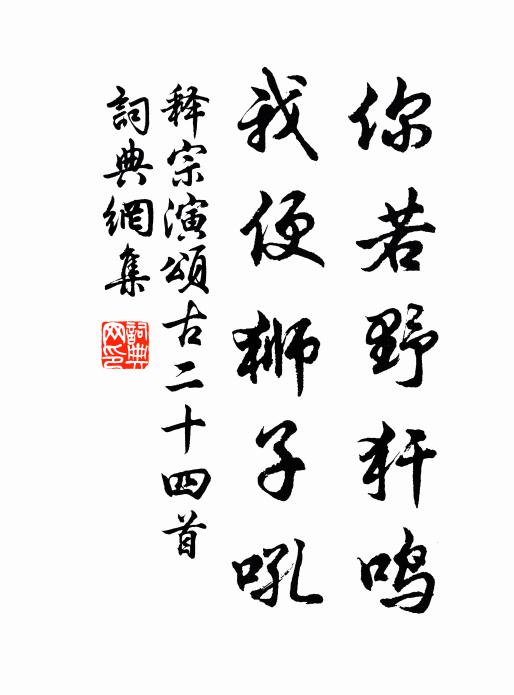 你若野犴鸣
我便狮子吼
释宗演颂古二十四首
詞典網集
詞典网印